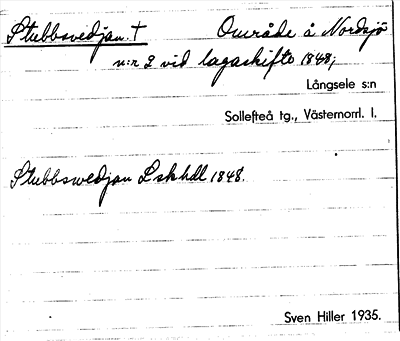 Stubbsvedjan. † Område å Nordsjö
n:r 2 vid lagaskifte 1848;
Långsele s:n
Sollefteå tg., Västernorrl. l.
Stubbswedjan Lskhdl 1848.
Sven Hiller 1935.